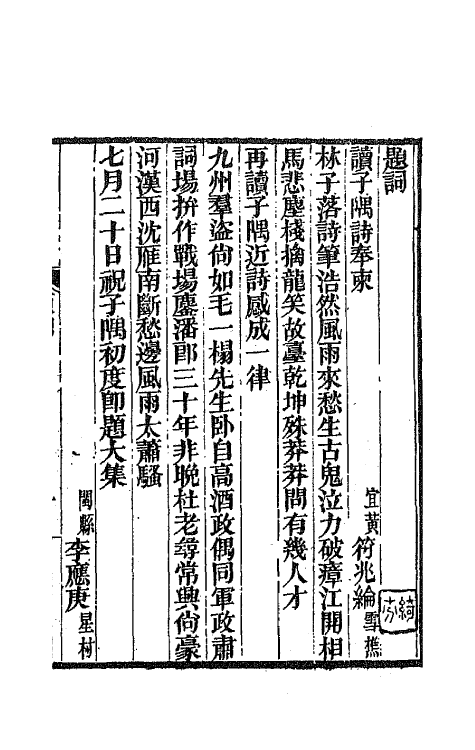 題詞
讀子隅詩奉柬
宜黃 符兆綸 雪樵
林子落詩筆浩然風雨來愁生古鬼泣力破瘴江開相
馬悲塵棧摛龍笑故臺乾坤殊莽莽問有幾人才
再讀子隅近詩感成一律
九州羣盜尙如毛一榻先生臥自高酒政偶同軍政肅
詞場拚作戰場鏖潘郎三十年非晚杜老尋常興尙豪
河漢西沈雁南斷愁邊風雨太蕭騷
七月二十日祝子隅初度卽題大集
閩縣 李應庚 星村